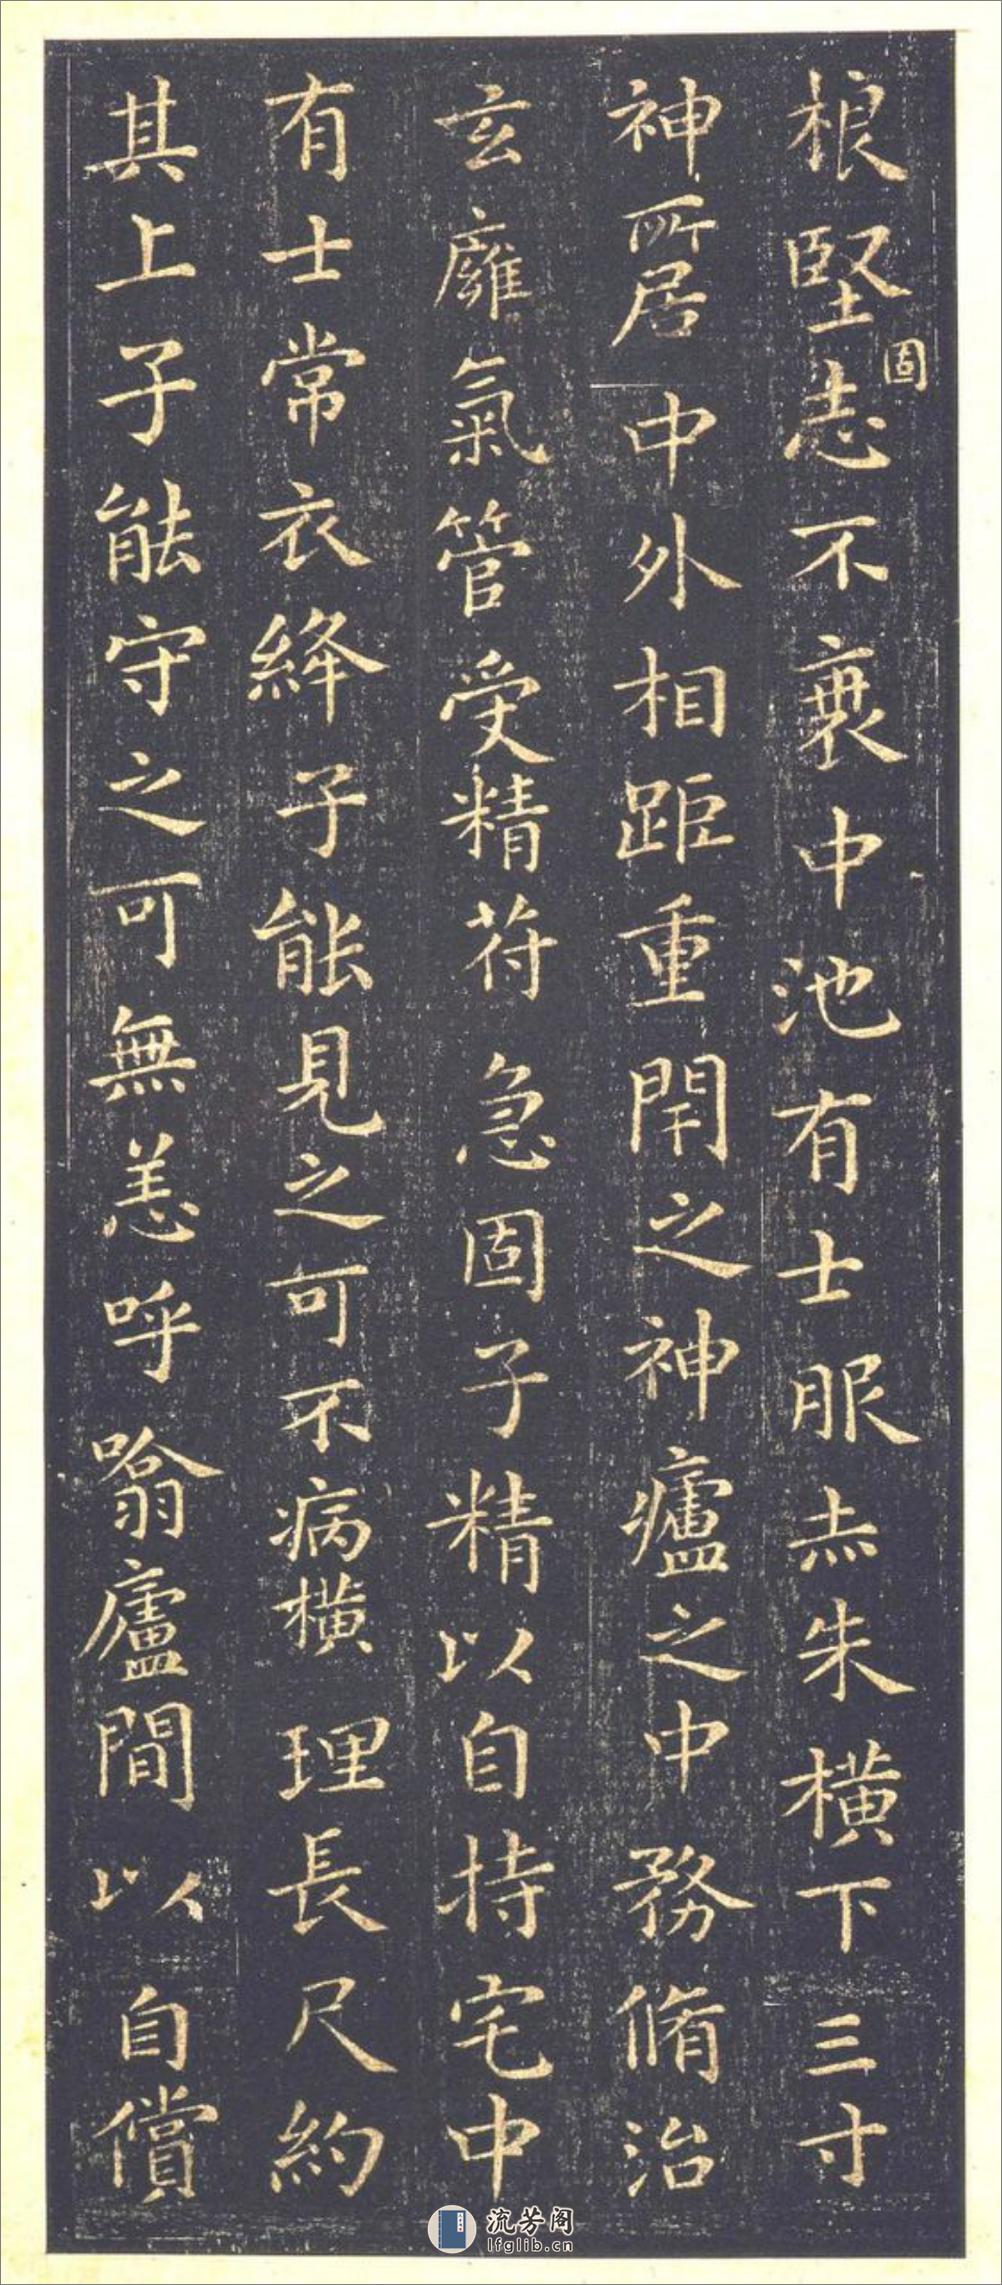 根堅固志不衰中池有士服赤朱橫下三寸
神所居中外相距重閉之神廬之中務脩治
玄廱氣管受精苻急固子精以自持宅中
有士常衣絳子能見之可不病橫理長尺約
其上子能守之可無恙呼噏廬間以自償
流芳阁
lfglib.cn